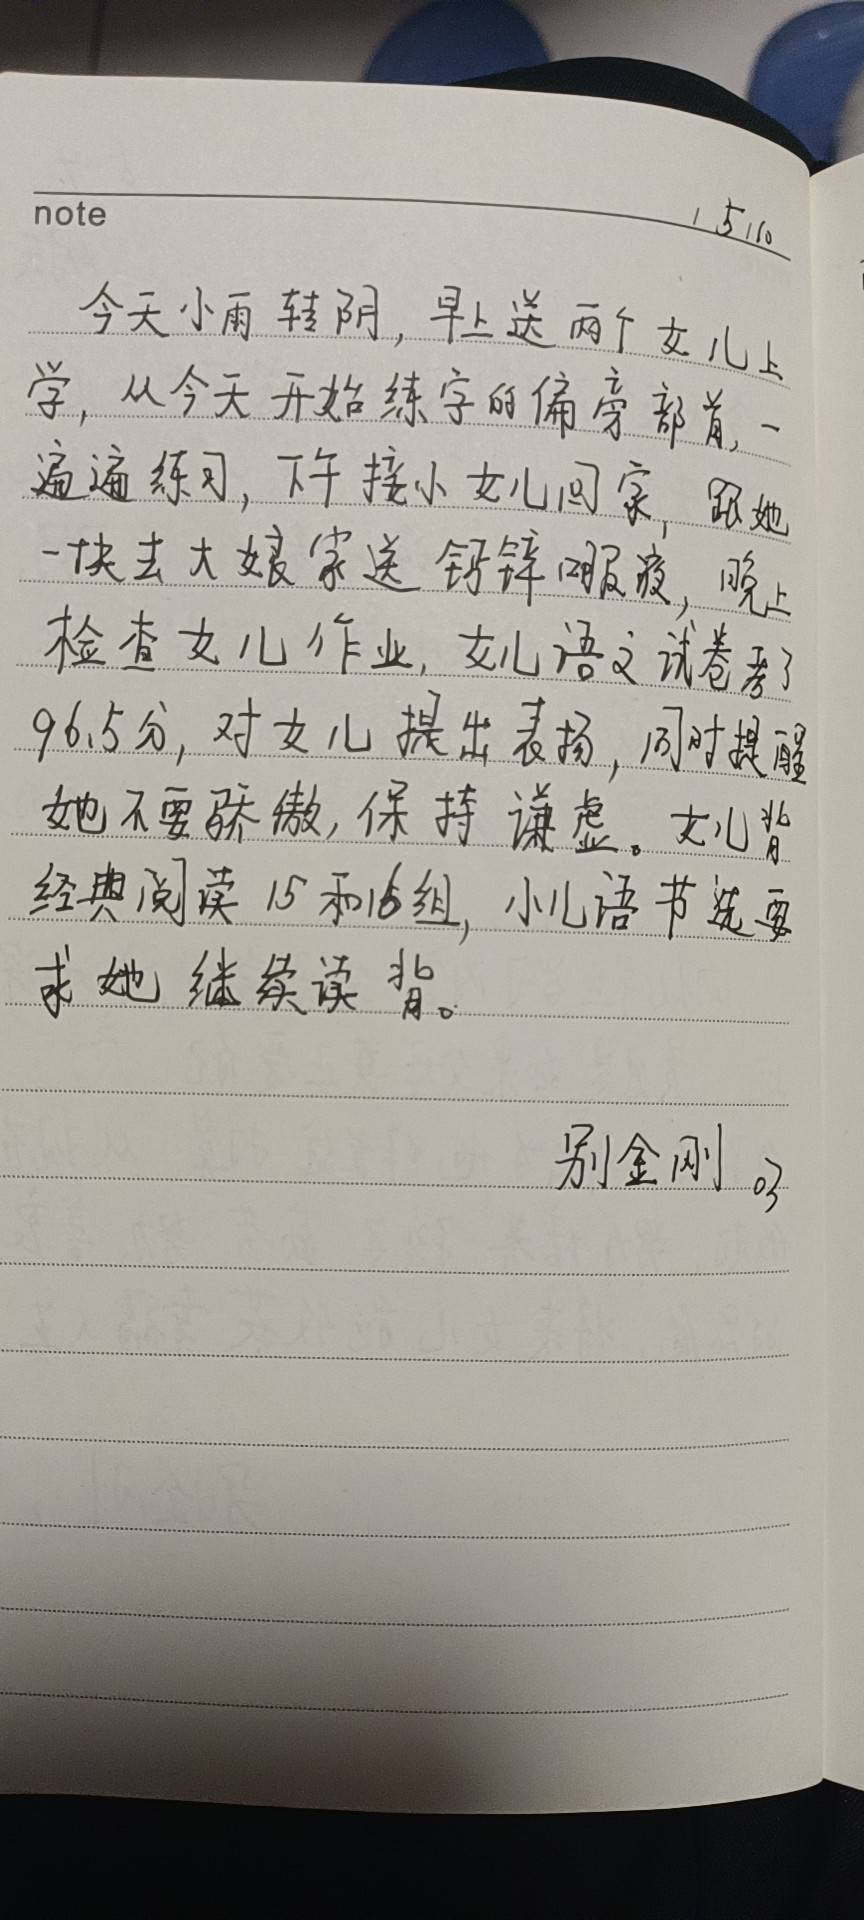 note
5 10
今天小雨转阴，早上送两个女儿上
学，从今天开始练字的偏旁部首，一
遍遍练习，下午接小女儿回家，跟她
一块去大娘家送钙锌口服液，晚上
检查女儿作业，女儿语文试卷考了
96.5分，对女儿提出表扬，同时提醒
她不要骄傲，保持谦虚。女儿背
经典阅读15和16组，小儿语节选要
求她继续读背。
别金刚 03